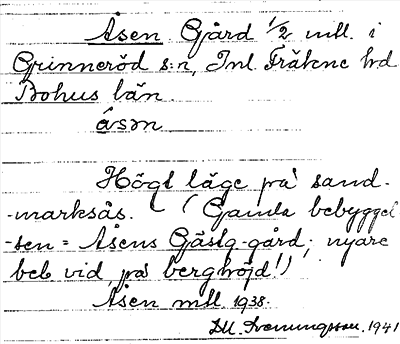 Åsen Gård 1/2 mtl. i
Grinneröd s:n, Inl. Fräkne hd
Bohus län.
åsən
Högt läge på sand-
-marksås. (Gamla bebyggel
-sen = Åsens Gästg-gård; nyare
beb vid, på berghöjd!)
Åsen mtl. 1938.
1941